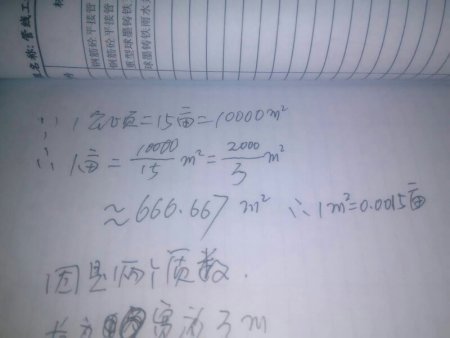 名称: 管线工
钢筋砼平接管
钢筋砼平接管
重型球墨铸铁
球墨铸铁雨水
∵ 1公顷=15亩=10000m²
∴ 1亩 = 10000/15 m² = 2000/3 m²
≈666.667 m² ∴1m²=0.0015亩
因是两个质数.
宽为3m